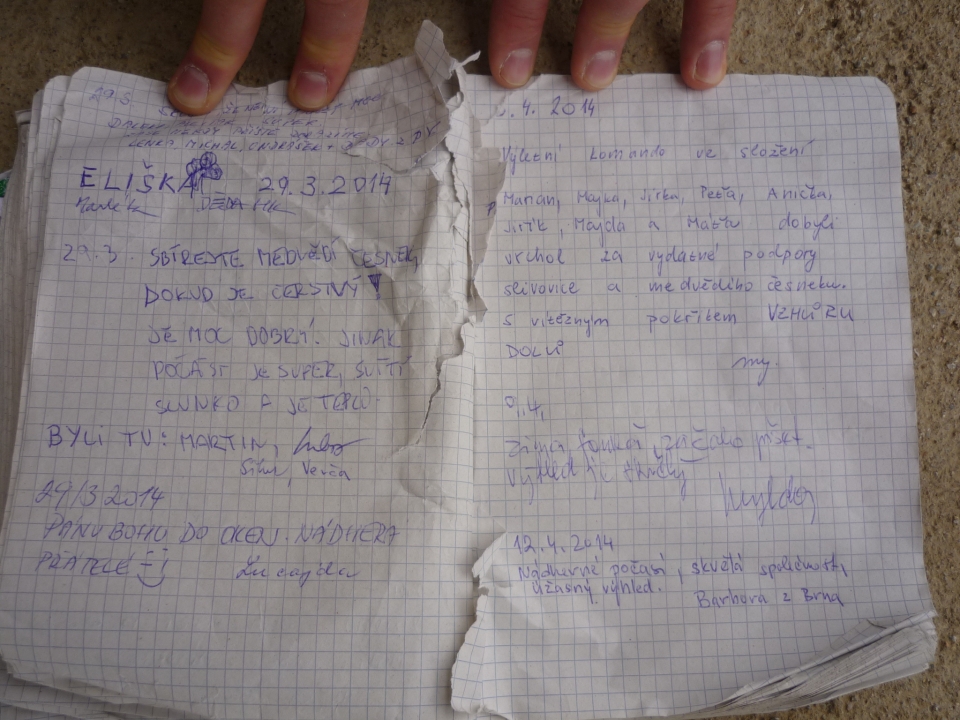 29.3.
LENKA, MICHAL, ONDRÁŠEK +
ELIŠKA 29.3.2014
Mareček DĚDA HK
29.3. SBÍREJTE MEDVĚDÍ ČESNEK,
DOKUD JE ČERSTVÝ!
JE MOC DOBRÝ! JINAK
POČASÍ JE SUPER, SVÍTÍ
SLUNKO A JE TEPLO.
BYLI TU: MARTIN,
Verča
29/3 2014
PÁNU BOHU DO OKEN. NÁDHERA
PŘÁTELÉ :-)
4. 2014
Výletní komando ve složení
Marian, Majka, Jirka, Peťa, Anička,
Jiřík, Majda a Matěj dobyli
vrchol za vydatné podpory
slivovice a medvědího česneku.
S vítězným pokřikem VZHŮRU
DOLŮ
my.
9.4.
Zima, fouká, začalo pršet.
Výhled je
12.4.2014
Nádherné počasí, skvělá společnost,
úžasný výhled.
Barbora z Brna